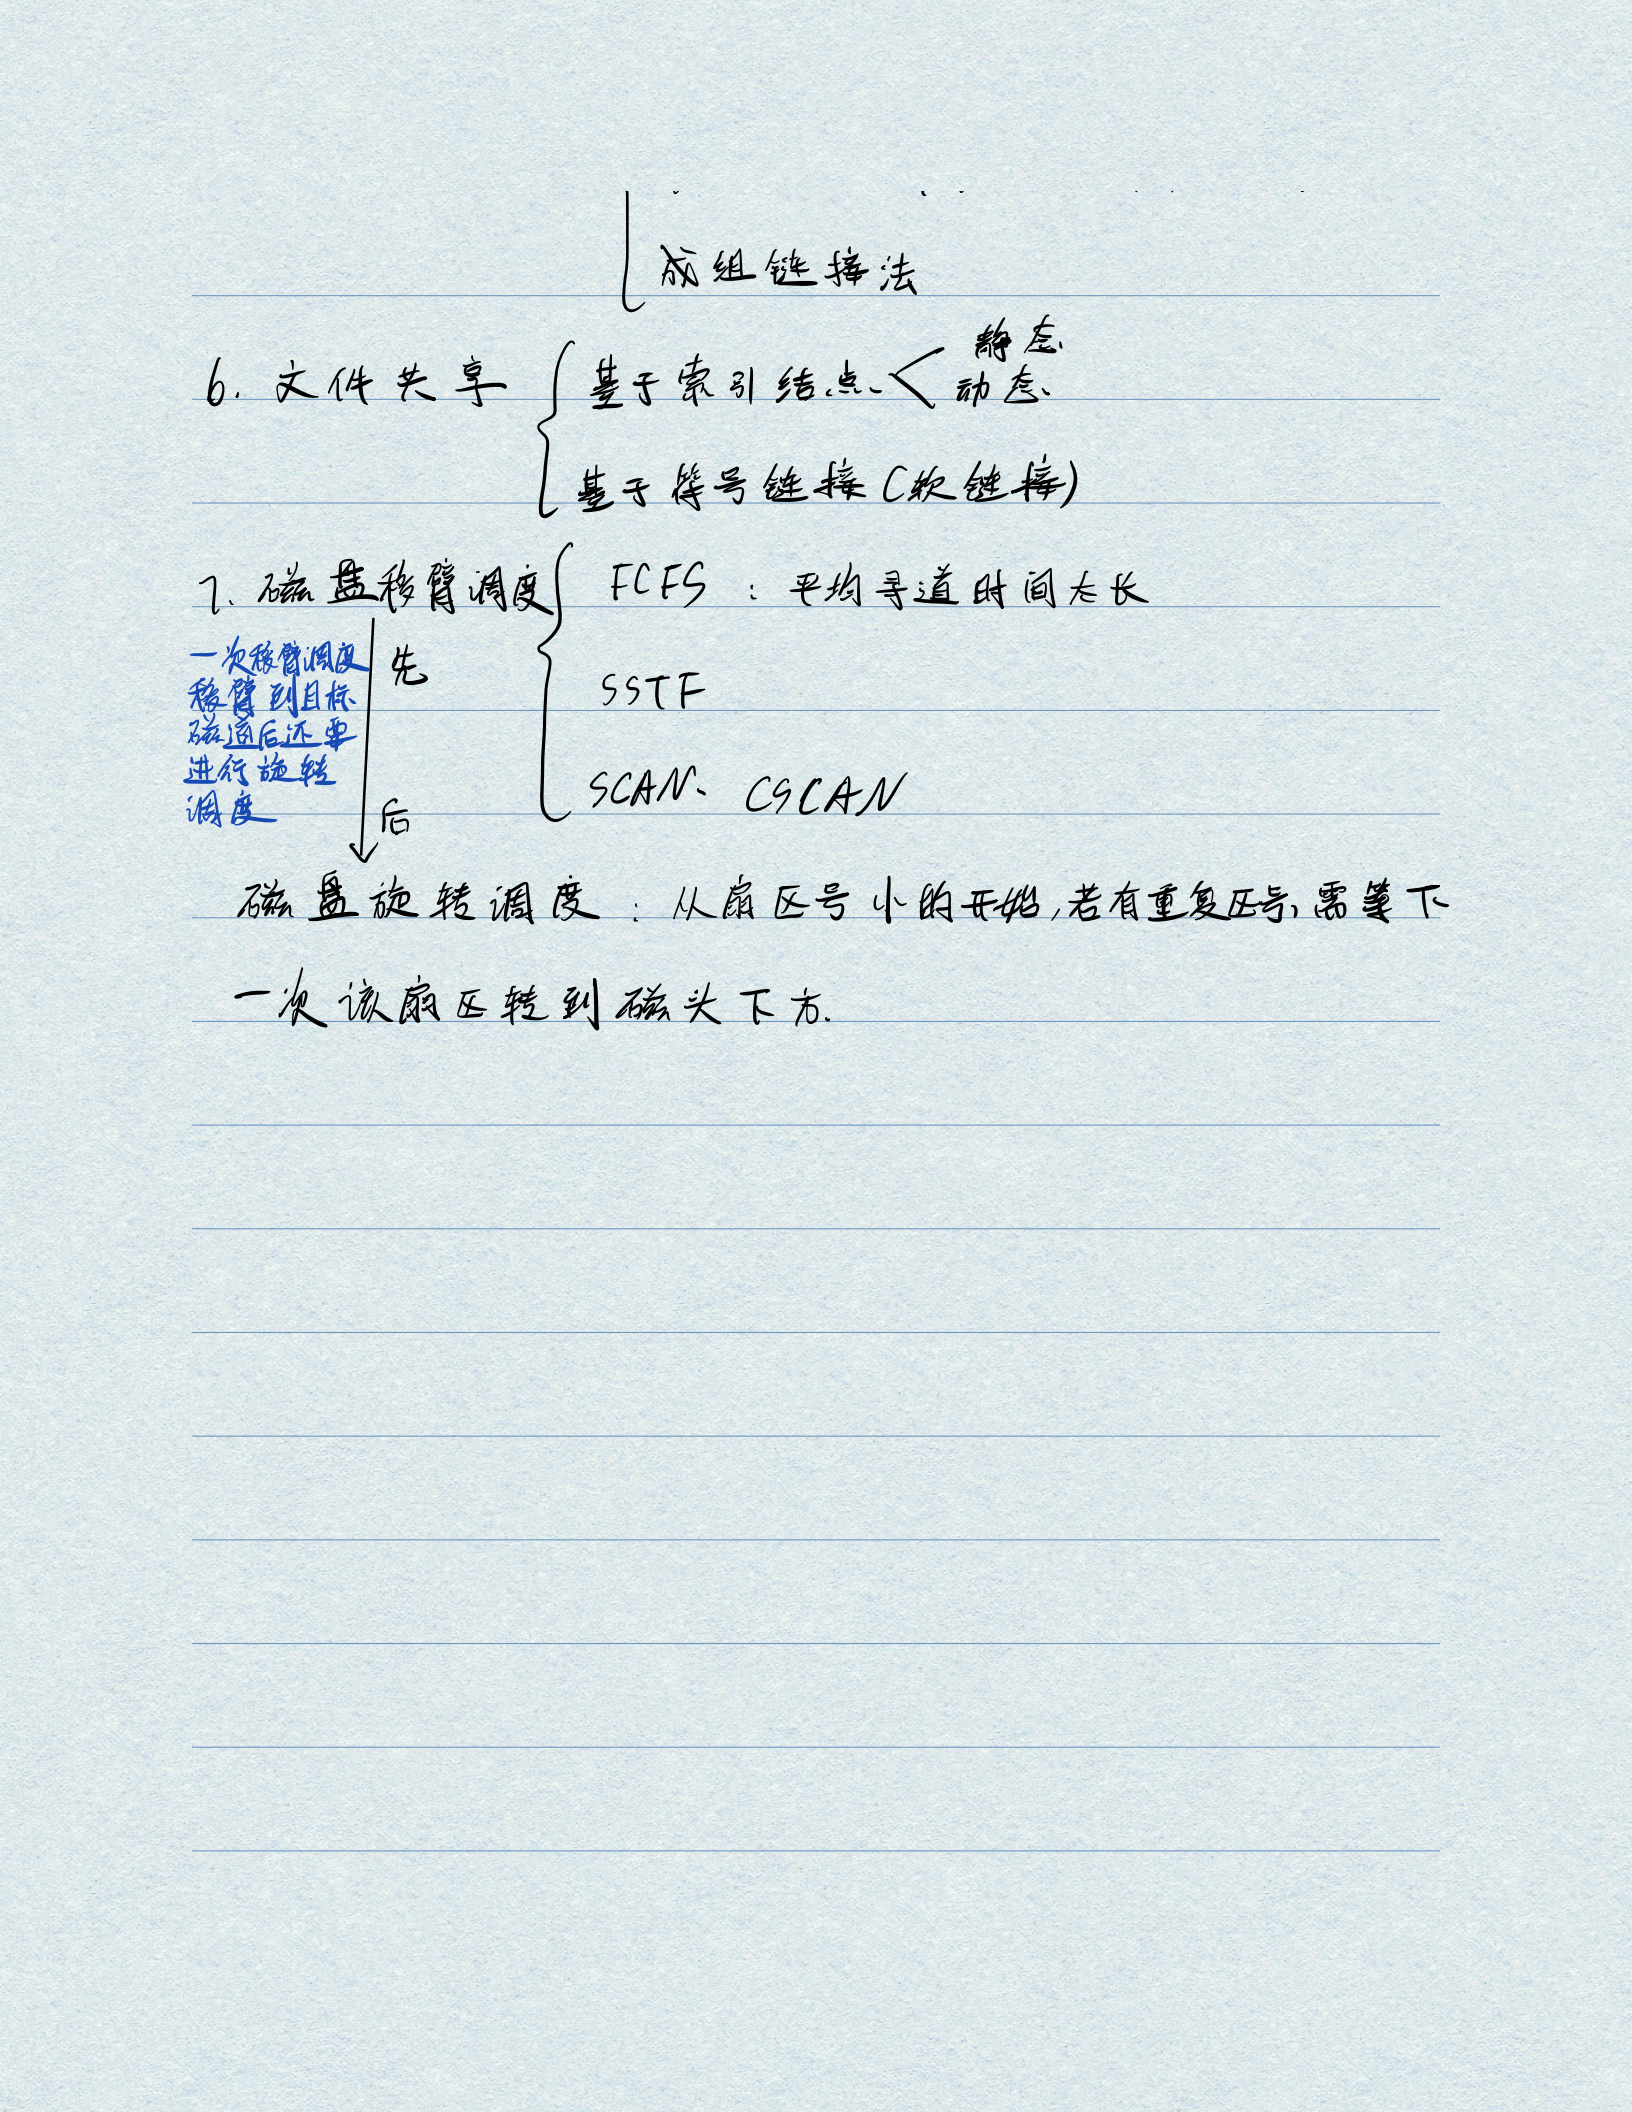 成组链接法
6. 文件共享 基于索引结点 静态
动态
基于符号链接(软链接)
7. 磁盘移臂调度 FCFS : 平均寻道时间太长
一次移臂调度 先
移臂到目标 SSTF
磁道后还要
进行旋转 SCAN、CSCAN
调度 后
磁盘旋转调度 : 从扇区号小的开始,若有重复区号,需等下
一次该扇区转到磁头下方.